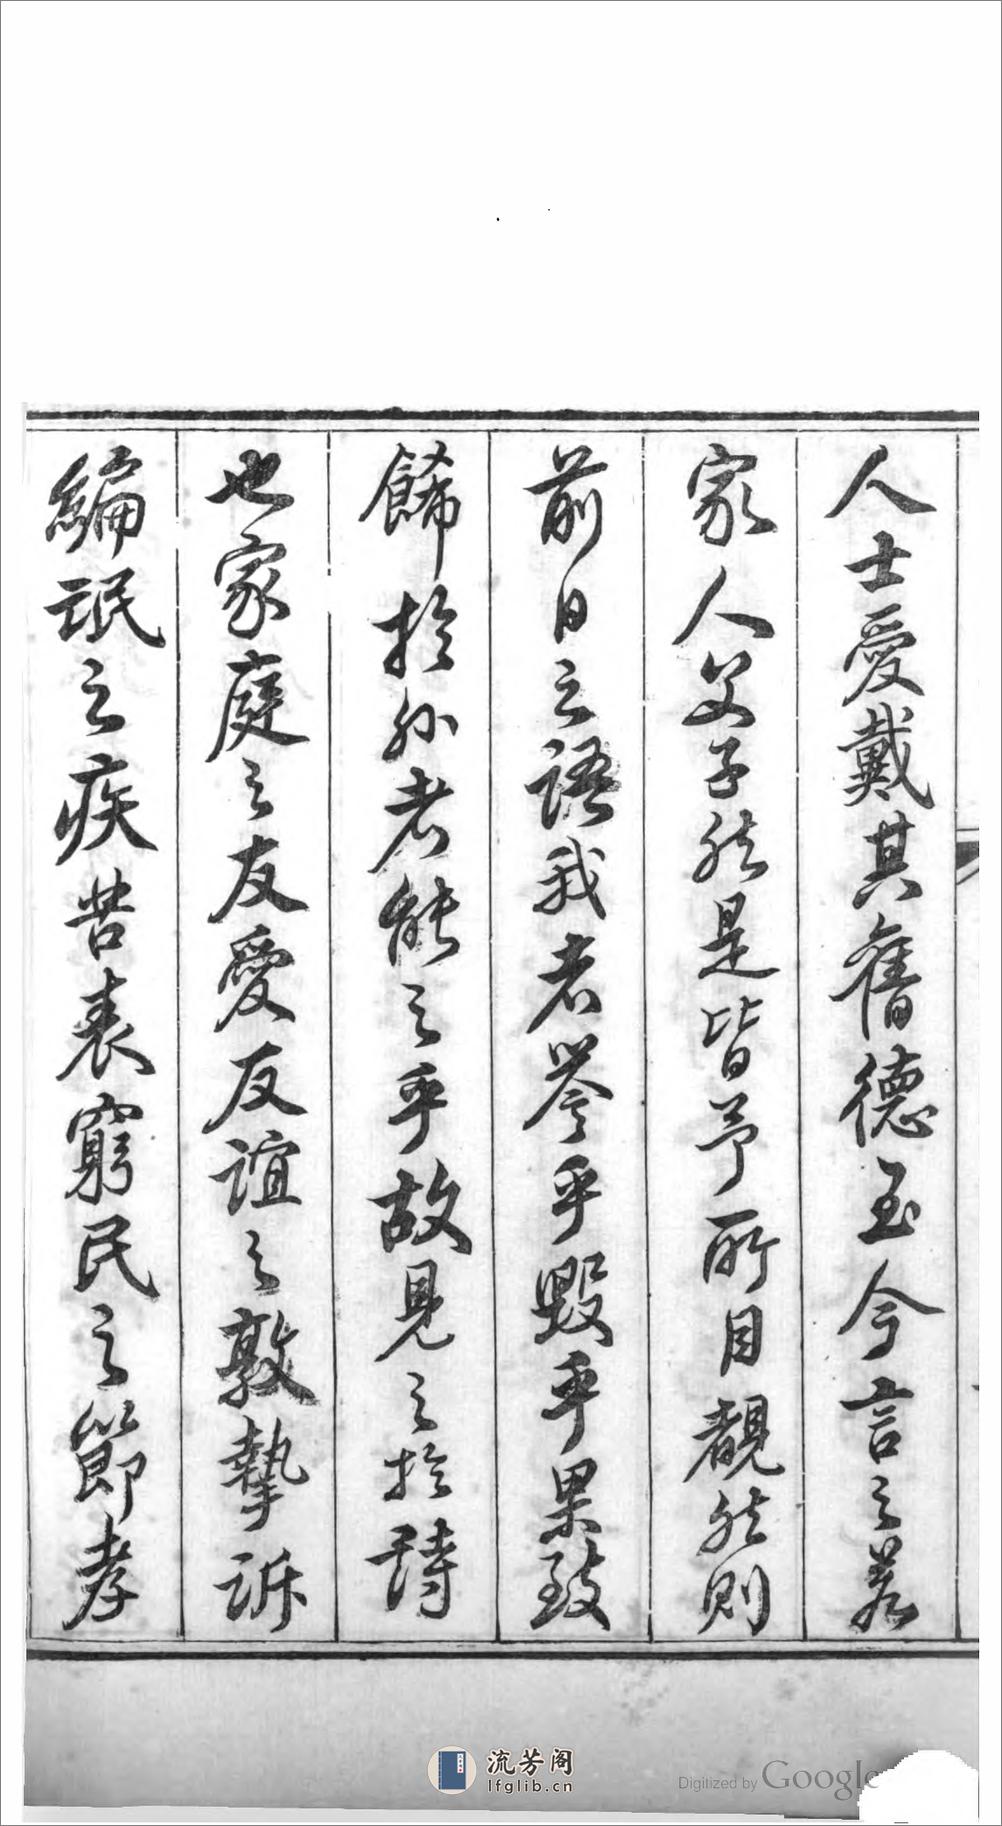 人士愛戴其舊德至今言之若
家人父子然是皆予所目覩然則
前日之語我者譽乎毀乎果致
餙於外者能之乎故見之於詩
也家庭之友愛友誼之敦摯訴
編氓之疾苦表窮民之節孝
流芳阁
lfglib.cn
Digitized by Google